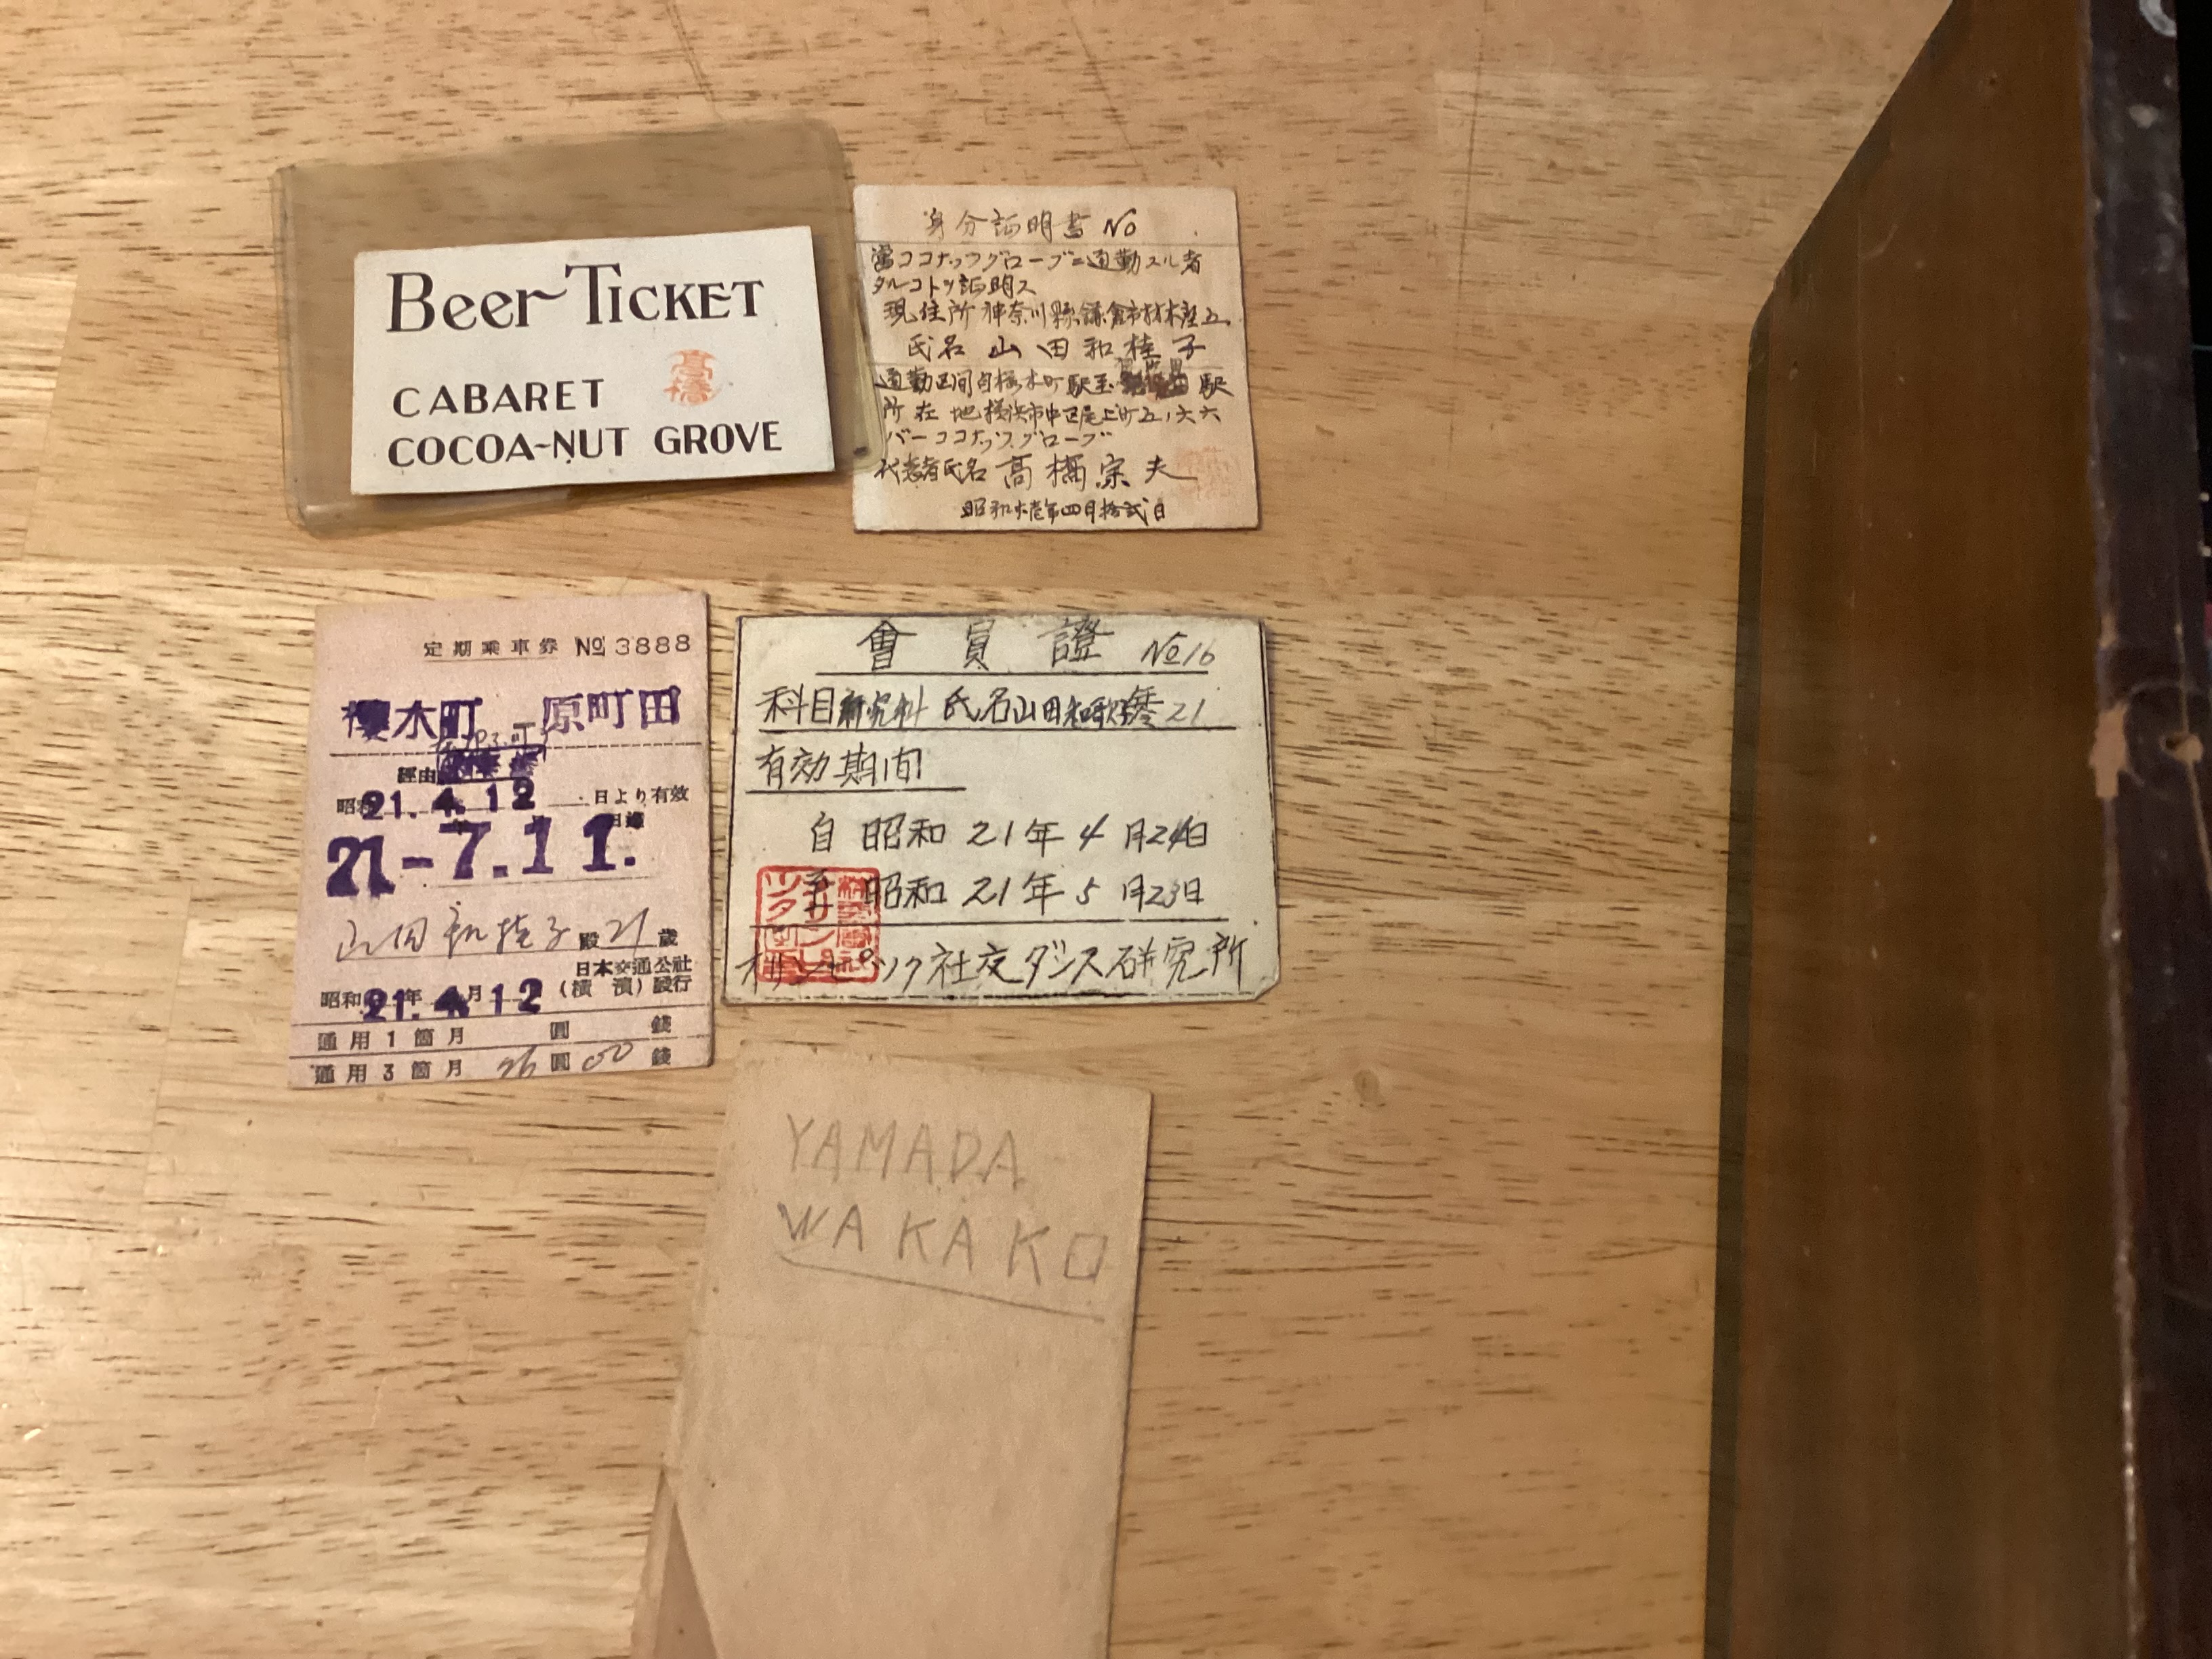 Beer Ticket
髙橋
CABARET
COCOA-NUT GROVE
身分証明書 No
當ココナツグローブニ通勤スル者
タルコトヲ証明ス
現住所 神奈川縣鎌倉市材木座五
氏名 山田和桂子
通勤区間自桜木町駅至 駅
所在地横浜市中区尾上町五ノ六六
バーココナツグローブ
代表者氏名 髙橋宗夫
昭和 年四月拾弐日
定期乗車券 No 3888
櫻木町 原町田
經由
昭和 21.4.12 日より有效
21-7.11.
山田和桂子 殿 21 歳
日本交通公社
昭和 21.年 4月 12 (横濱)發行
通用1箇月 圓 錢
通用3箇月 26 圓 00 錢
會員證 No 16
科目研究科 氏名山田和歌 21
有効期间
自 昭和 21年 4月24日
至 昭和 21年 5月23日
オリンピック社交ダンス研究所
YAMADA
WAKAKO